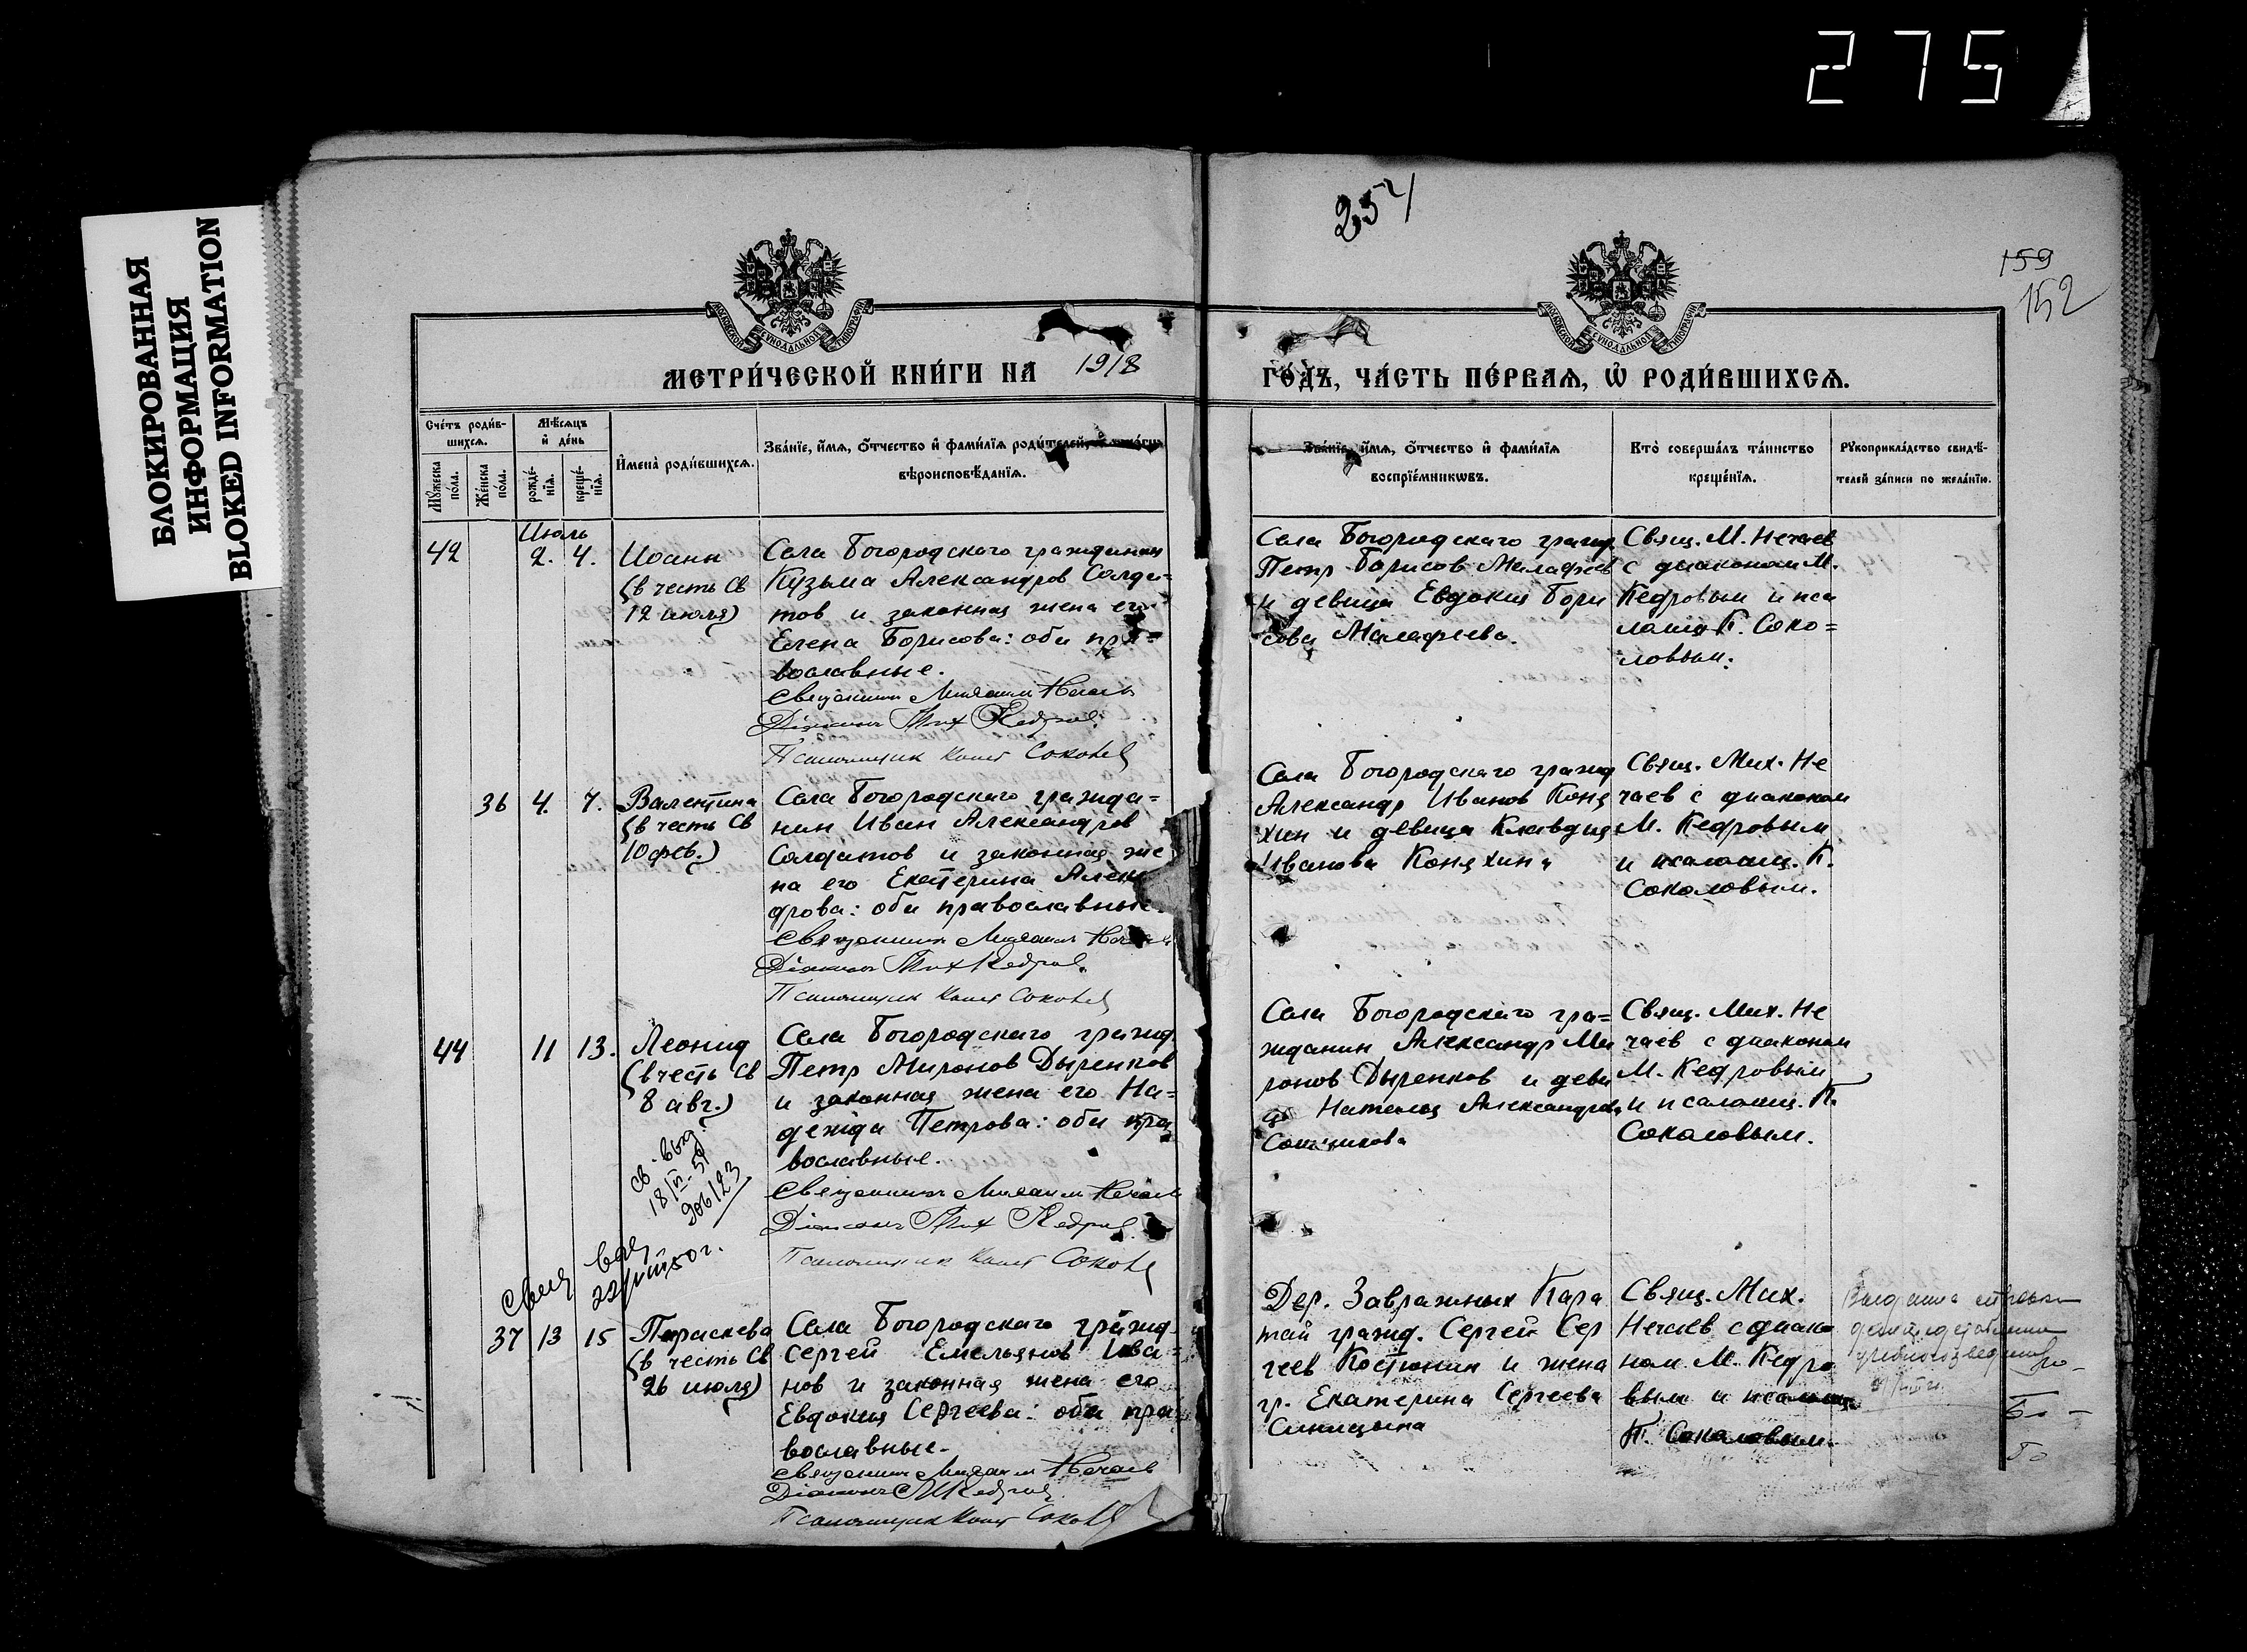 275
БЛОКИРОВАННАЯ
ИНФОРМАЦИЯ
BLOKED INFORMATION
254
159
152
МОСКОВСКОЙ СѴНОДАЛЬНОЙ ТИПОГРАФІИ
МОСКОВСКОЙ СѴНОДАЛЬНОЙ ТИПОГРАФІИ
МЕТРИ́ЧЕСКОЙ КНИ́ГИ НА 1918
ГО́ДЪ, ЧА́СТЬ ПЕ́РВАѦ, Ѡ҆ РОДИ́ВШИХСѦ.
Сче́тъ роди́в-
шихсѧ.
Мꙋ́жеска
по́ла.
Же́нска
по́ла.
Мѣ́сѧцъ
и҆ де́нь
рожде́-
нїѧ.
креще́-
нїѧ.
И҆мена̀ роди́вшихсѧ.
Зва́нїе, и҆́мѧ, ѻ҆́тчество и҆ фами́лїѧ роди́телей,
вѣроисповѣ́данїѧ.
Зва́нїе, и҆́мѧ, ѻ҆́тчество и҆ фами́лїѧ
воспрїе́мникѡвъ.
Кто̀ соверша́лъ та́инство
креще́нїѧ.
Рꙋкоприкла́дство свидѣ́-
телей за́писи по жела́нїю.
Июль
42 2. 4.
Иоанн
(в честь Св
12 июля)
Села Богородскаго гражданин
Кузьма Александров Солда=
тов и законная жена его
Елена Борисова: оба пра=
вославные.
Священник Михаил Нечаев
Діаконъ Мих Кедров
Псаломщик Конст Соколов
Села Богородскаго гражд
Петр Борисов Малафеев
и девица Евдокия Бори
сова Малафеева.
Свящ. М. Нечаев
с диаконом М.
Кедровым и пса
ломщ К. Соко=
ловым.
36 4. 7.
Валентина
(в честь Св
10 фев.)
Села Богородскаго гражда=
нин Иван Александров
Солдатов и законная же
на его Екатерина Алексан
дрова: оба православные.
Священник Михаил Нечаев
Діаконъ Мих Кедров.
Псаломщик Конст Соколов
Села Богородскаго гражд
Александр Иванов Коня
хин и девица Клавдия
Иванова Коняхина
Свящ. Мих. Не
чаев с диаконом
М. Кедровым
и псаломщ. К.
Соколовым.
44 11 13.
Леонид
(в честь Св
8 авг.)
св. выд.
Села Богородскаго гражд.
Петр Миронов Дыренков
и законная жена его На=
дежда Петрова: оба пра
вославные.
Священник Михаил Нечаев
Діаконъ Мих Кедров
Псаломщик Конст Соколов
Села Богородскаго гра=
жданин Александр Ми
ронов Дыренков и деви
ца Наталья Александров
Свящ. Мих. Не
чаев с диаконом
М. Кедровым
и псаломщ. К.
Соколовым.
37 13 15
Параскева
(в честь Св
26 июля)
Села Богородскаго гражд.
Сергей Емельянов Ива
нов и законная жена его
Евдокия Сергеева: оба пра
вославные.
Священник Михаил Нечаев
Діаконъ М Кедров
Псаломщик Конст Соколов
Дер. Завражных Кара
тай гражд. Сергей Сер
геев Костюнин и жена
гр. Екатерина Сергеева
Синицына
Свящ. Мих.
Нечаев с диако
ном М. Кедро
вым и псаломщ
К. Соколовым.